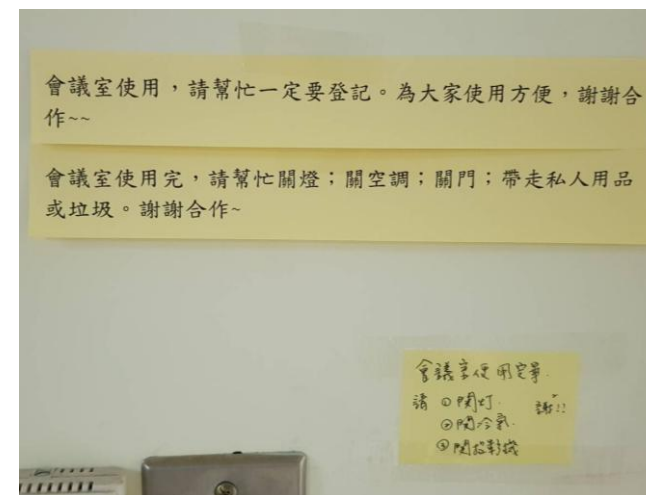 會議室使用，請幫忙一定要登記。為大家使用方便，謝謝合
作~~
會議室使用完，請幫忙關燈；關空調；關門；帶走私人用品
或垃圾。謝謝合作~
會議室使用完畢.
請 ①関灯. 謝!!
②関冷氣.
③関投影機